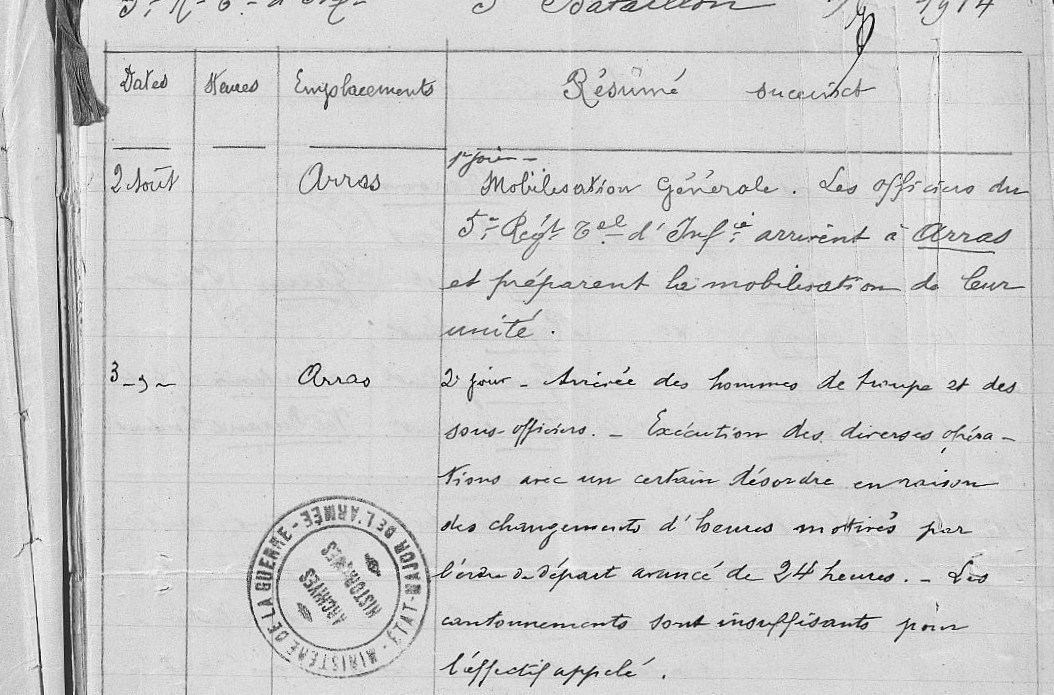 5e R. T. d'Inf. 3e Bataillon 1914
Dates Heures Emplacements Résumé succinct
1er jour -
2 Août Arras Mobilisation Générale. Les officiers du
5e Régt Tal d'Infie arrivent à Arras
et préparent la mobilisation de leur
unité.
3 -"- Arras 2e jour - Arrivée des hommes de troupe et des
sous-officiers. - Exécution des diverses opéra-
tions avec un certain désordre en raison
des changements d'heures motivés par
l'ordre de départ avancé de 24 heures. - Les
cantonnements sont insuffisants pour
l'effectif appelé.
MINISTÈRE DE LA GUERRE - ÉTAT-MAJOR DE L'ARMÉE -
ARCHIVES
HISTORIQUES